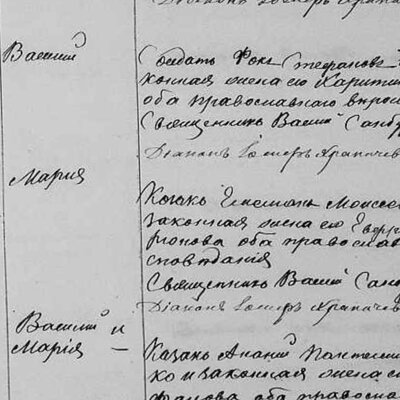 Діаконъ Іосифъ Храпачев
Василій
Солдатъ Фока Стефановъ
конная жена его Харити
оба православнаго вѣроис
Священникъ Василій Самб
Діаконъ Іосифъ Храпачев
Мария
Козакъ Емельянъ Моисее
законная жена его Евфр
фіонова оба православ
сповѣданія
Священникъ Василій Самб
Діаконъ Іосифъ Храпачев
Василій и
Марія —
Казакъ Ананій Пантелии
ко и законная жена е
фанова оба правосла